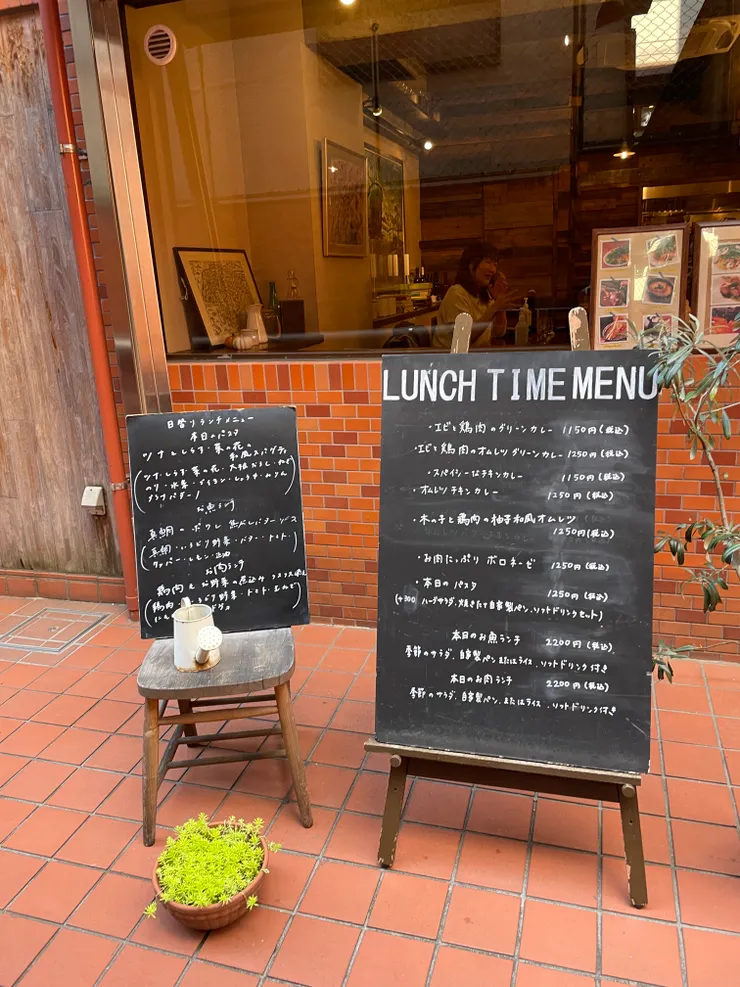 日替りランチメニュー
本日のパスタ
ツナとしらす・菜の花の
和風スパゲティ
お魚ランチ
真鯛のポワレ 焦がしバターソース
お肉ランチ
鶏肉とお野菜の煮込み クスクス添え
LUNCH TIME MENU
・エビと鶏肉のグリーンカレー 1150円(税込)
・エビと鶏肉のオムレツグリーンカレー 1250円(税込)
・スパイシーなチキンカレー 1150円(税込)
・オムレツチキンカレー 1250円(税込)
・木の子と鶏肉の柚子和風オムレツ
1250円(税込)
・お肉たっぷりボロネーゼ 1250円(税込)
・本日のパスタ 1250円(税込)
(+300 ハーフサラダ・焼きたて自家製パン・ソフトドリンクセット)
本日のお魚ランチ 2200円(税込)
季節のサラダ、自家製パンまたはライス、ソフトドリンク付き
本日のお肉ランチ 2200円(税込)
季節のサラダ、自家製パン、またはライス、ソフトドリンク付き